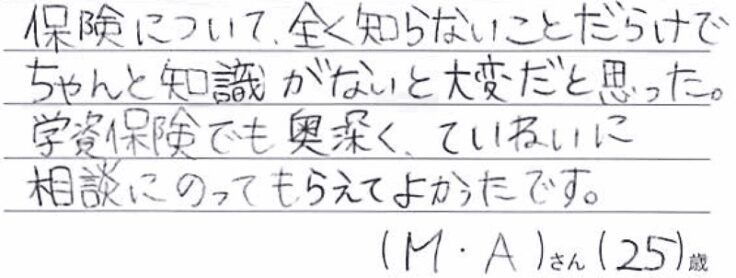 保険について、全く知らないことだらけで
ちゃんと知識がないと大変だと思った。
学資保険でも奥深く、ていねいに
相談にのってもらえてよかったです。
(M・A)さん(25)歳